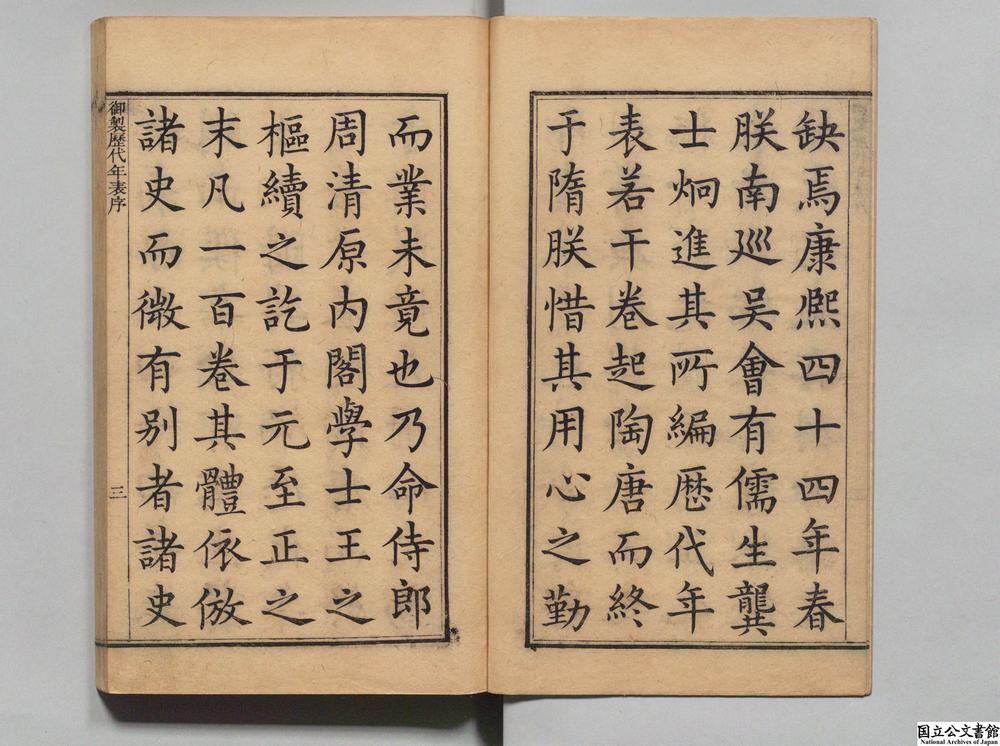 缺焉康熙四十四年春
朕南巡吴會有儒生龔
士炯進其所編歷代年
表若干卷起陶唐而終
于隋朕惜其用心之勤
而業未竟也乃命侍郎
周清原内閣學士王之
樞續之訖于元至正之
末凡一百卷其體依倣
諸史而微有别者諸史
御製歷代年表序
三
国立公文書館
National Archives of Japan